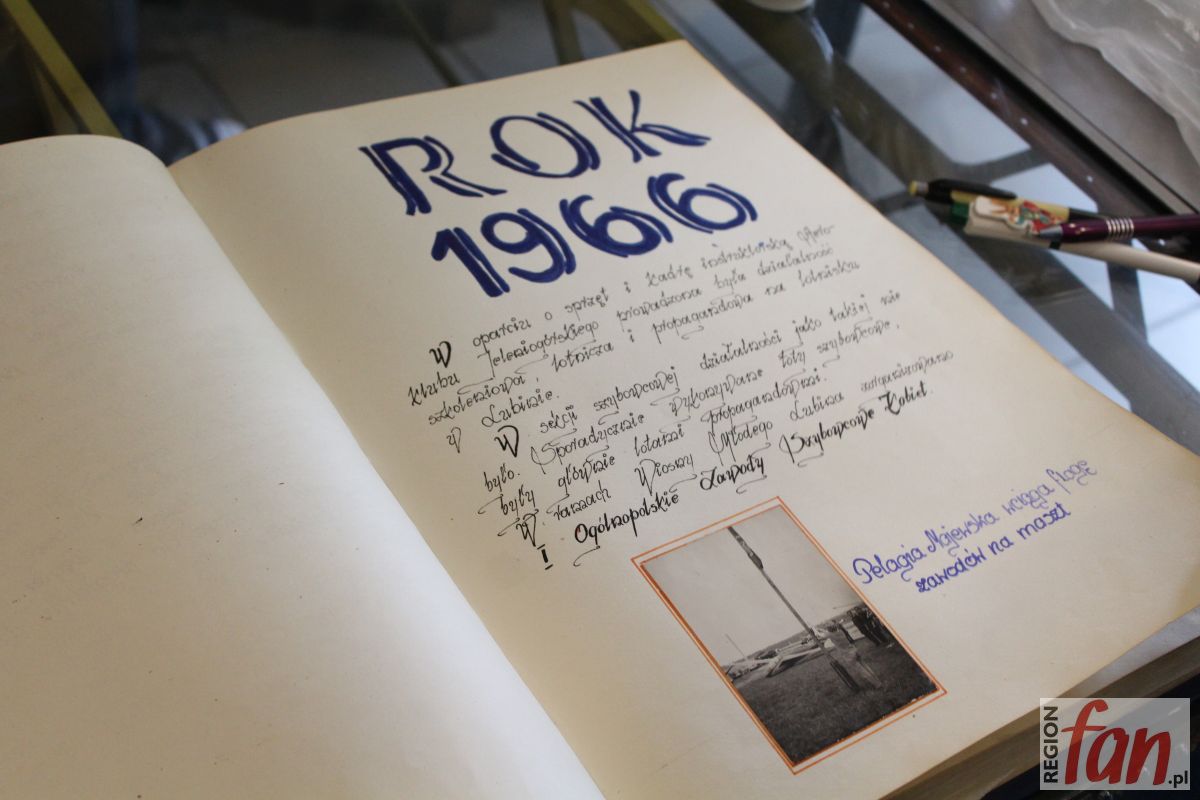 ROK
1966
W oparciu o sprzęt i kadrę instruktorską Aero-
klubu Jeleniogórskiego prowadzona była działalność
szkoleniowa, lotnicza i propagandowa na lotnisku
w Lubinie.
W sekcji szybowcowej działalności jako takiej nie
było. Sporadycznie wykonywane loty szybowcowe,
były głównie lotami propagandowymi.
W ramach Wiosny Młodego Lubina zorganizowano
I Ogólnopolskie Zawody Szybowcowe Kobiet.
Pelagia Majewska wciąga flagę
zawodów na maszt
REGION
fan.pl